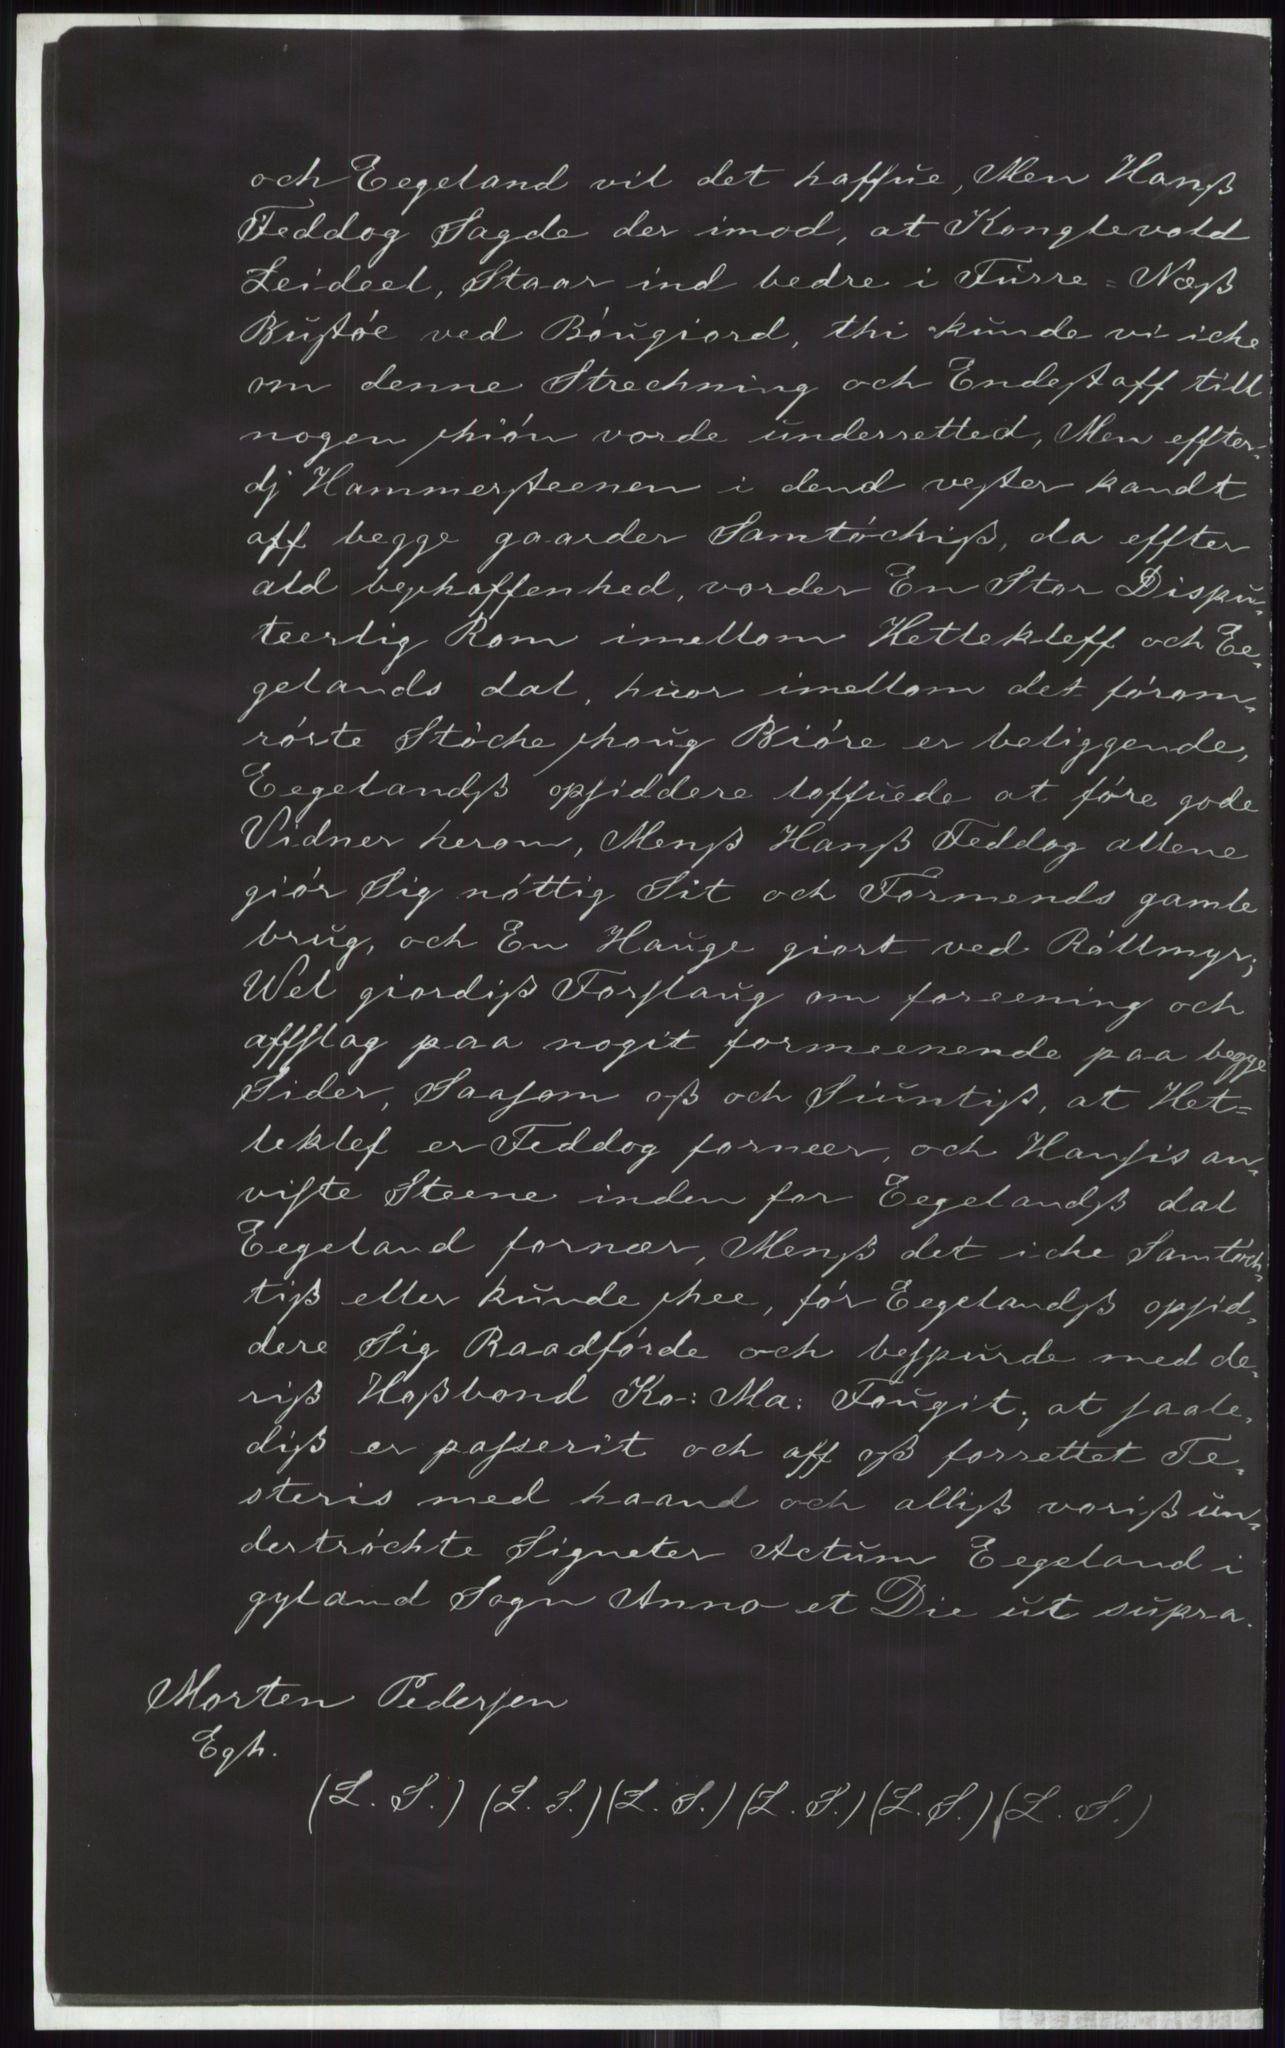 och Eegeland vil det haffŭe, Men Hanß
Feddog Sagde der imod, at Konglevold
Leideel, Staar ind bedre i Fŭrre=Næß
Bŭstóe ved Bóŭgiord, thi kŭnde vi iche
om denne Strechning och Endestaff till
nogen skión vorde ŭnderretted, Men effter-
dj Hammersteenen i dend vester kandt
aff begge gaarder Samtóchiß, da effter
ald beskaffenhed, vorder En Stor Dispŭ-
teerlig Rom imellom Hetlekleff och Ee-
gelands dal, hŭor imellom det fórom-
rórte Stóche skoŭg Bióre er beliggende,
Eegelandß opsiddere loffŭede at fóre gode
Vidner herom, Menß Hanß Feddog allene
giór Sig nóttig Sit och Formends gamle
brŭg, och En Haŭge giort ved Róllmyr;
Wel giordiß Forslaŭg om foreening och
affslag paa nogit formeenende paa begge
Sider, Saasom oß och Siŭntiß, at Het=
leklef er Feddog fornær, och Hansis an-
viste Steene inden for Eegelandß dal
Eegeland fornær, Menß det iche Samtóch-
tiß eller kŭnde skee, fór Eegelandß opsid-
dere Sig Raadfórde och bespŭrde med de-
riß Hoßbond Ko: Ma: Foŭgit; at saale-
diß er passerit och aff oß forrettet Te-
steris med haand och alliß voriß ŭn-
dertróchte Signeter Actŭm Eegeland i
gyland Sogn Anno et Die ŭt sŭpra.
Morten Pedersen
Egh.
(L. S.) (L. S.) (L. S.) (L. S.) (L. S.) (L. S.)